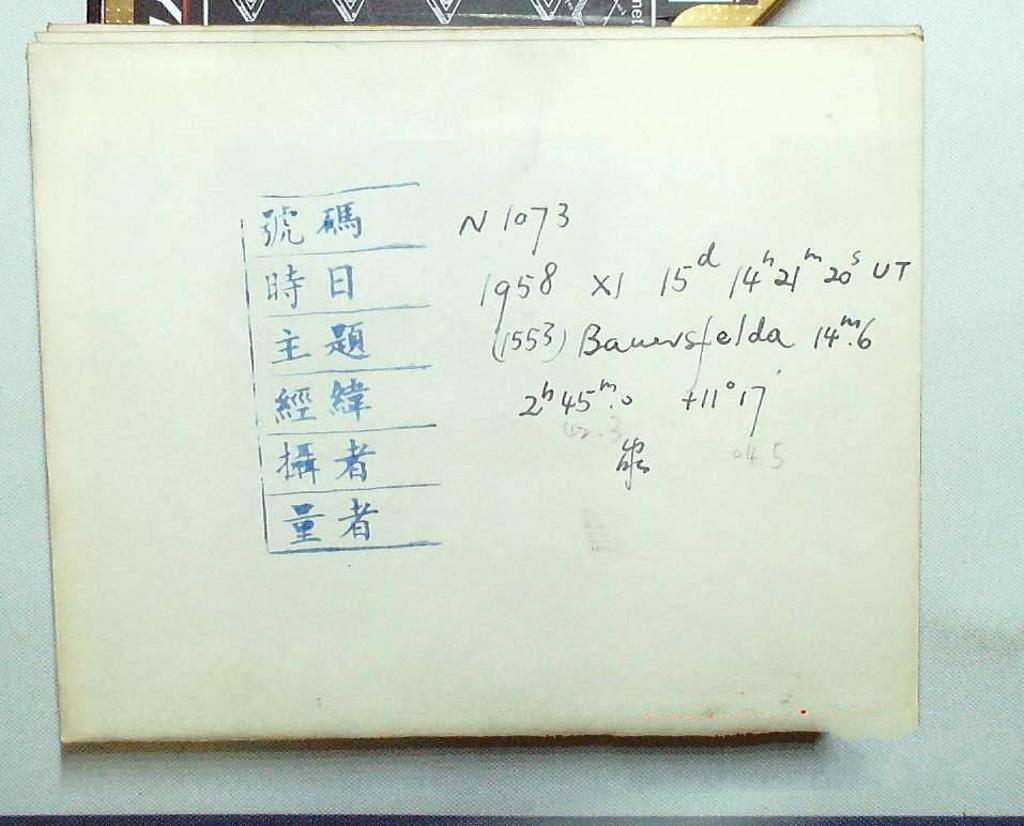 號碼 N 1073
時日 1958 XI 15ᵈ 14ʰ 21ᵐ 20ˢ UT
主題 (1553) Bauersfelda 14ᵐ.6
經緯 2ʰ 45ᵐ.0 +11° 17'
42.3 04.5
攝者
量者